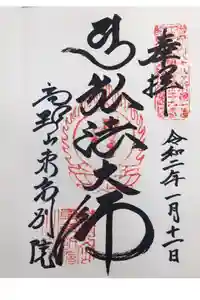 奉拝
令和二年一月十一日
弘法大師
高野山東京別院